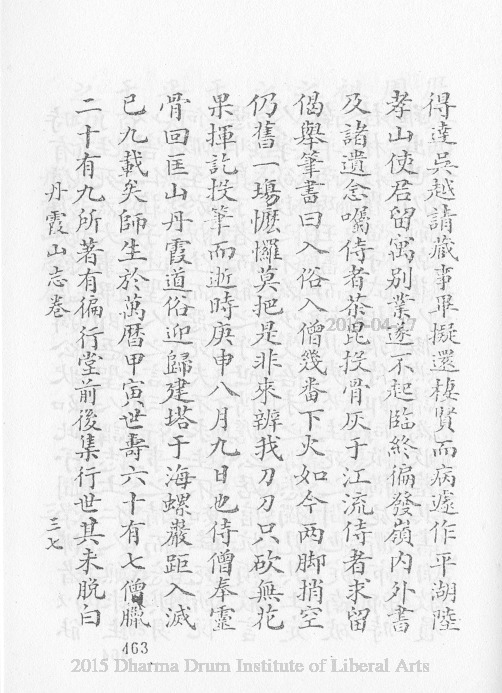 得達吳越請藏事畢擬還棲賢而病遽作平湖陸
孝山使君留寓別業遂不起臨終徧發嶺內外書
及諸遺念囑侍者茶毘投骨灰于江流侍者求留
偈舉筆書曰入俗入僧幾番下火如今两脚捎空
仍舊一塲懡㦬莫把是非來辨我刀刀只砍無花
果揮訖投筆而逝時庚申八月九日也侍僧奉靈
骨回匡山丹霞道俗迎歸建塔于海螺巖距入滅
已九載矣師生於萬曆甲寅世壽六十有七僧臘
二十有九所著有徧行堂前後集行世其未脫白
丹霞山志卷
三七
463
2015 Dharma Drum Institute of Liberal Arts